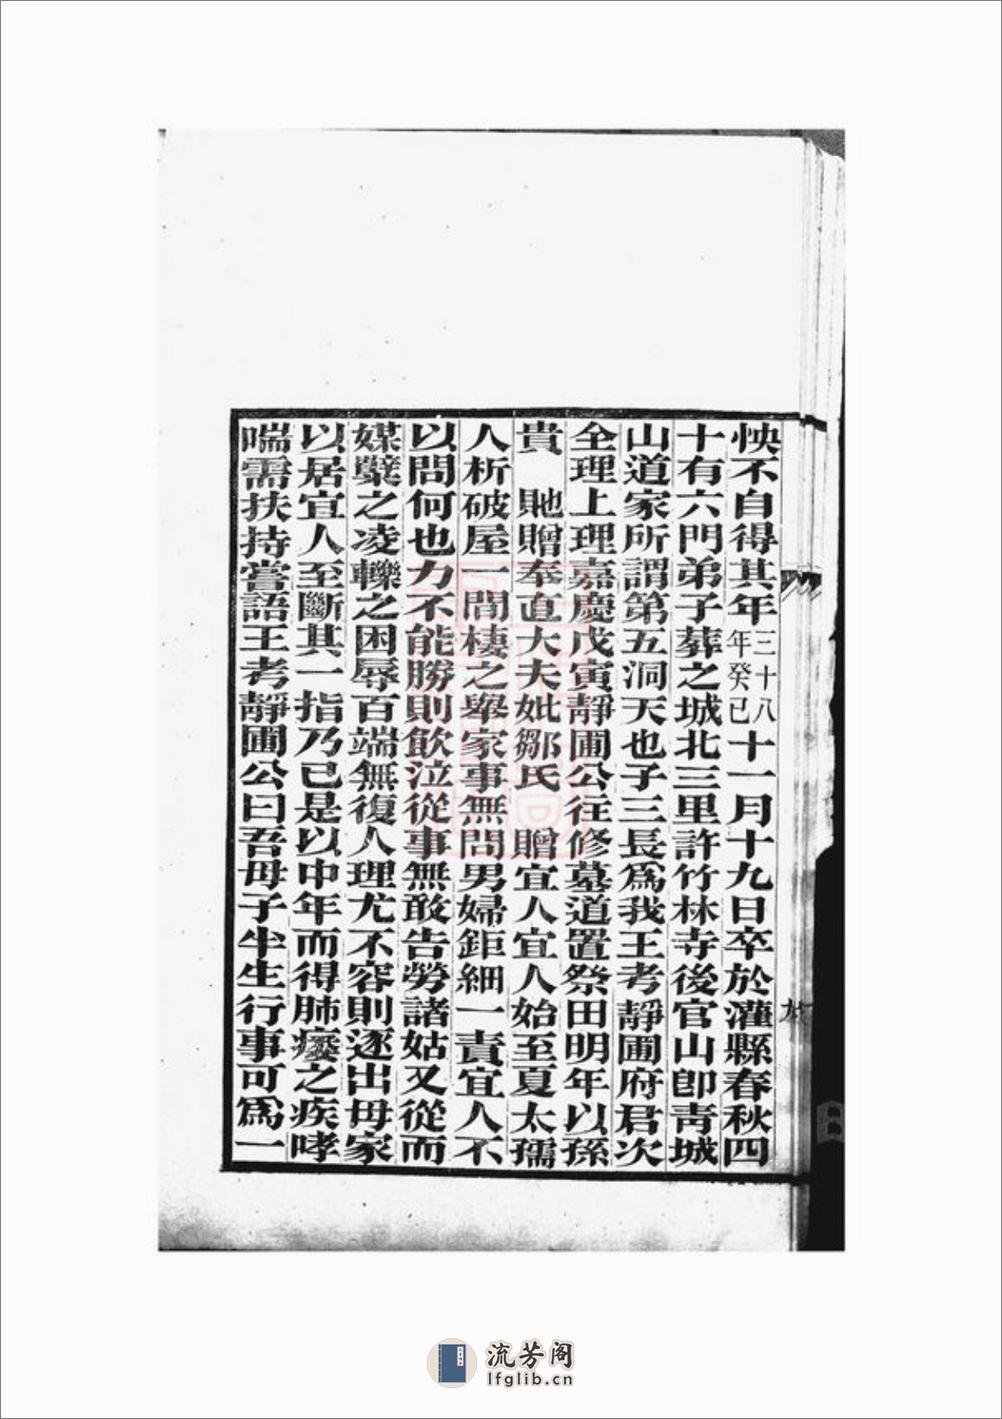 怏不自得其年三十八年癸巳十一月十九日卒於灌縣春秋四
十有六門弟子葬之城北三里許竹林寺後官山卽青城
山道家所謂第五洞天也子三長爲我王考靜圃府君次
全理上理嘉慶戊寅靜圃公往修墓道置祭田明年以孫
貴　貤贈奉直大夫妣鄒氏　贈宜人宜人始至夏太孺
人析破屋一間棲之舉家事無問男婦鉅細一責宜人不
以問何也力不能勝則飲泣從事無敢告勞諸姑又從而
媒櫱之凌轢之困辱百端無復人理尤不容則逐出毋家
以居宜人至斷其一指乃已是以中年而得肺痿之疾哮
喘需扶持嘗語王考靜圃公曰吾母子半生行事可爲一
流芳阁
lfglib.cn